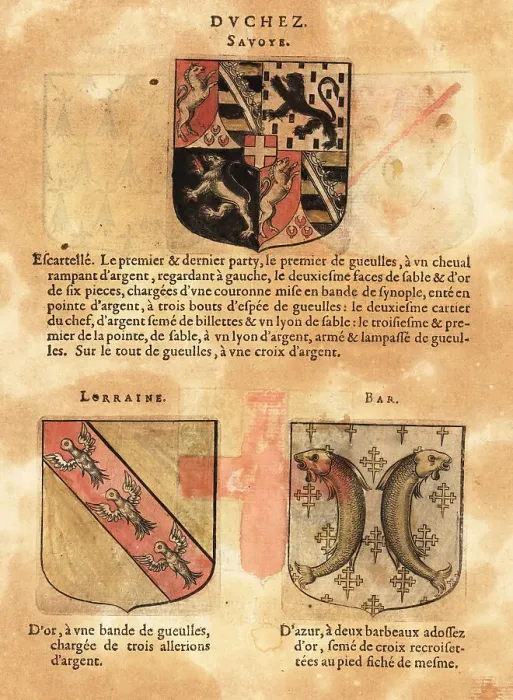 DVCHEZ.
SAVOYE.
Escartellé. Le premier & dernier party, le premier de gueulles, à vn cheual
rampant d'argent, regardant à gauche, le deuxiesme faces de sable & d'or
de six pieces, chargées d'vne couronne mise en bande de synople, enté en
pointe d'argent, à trois bouts d'espée de gueulles: le deuxiesme cartier
du chef, d'argent semé de billettes & vn lyon de sable: le troisiesme & pre-
mier de la pointe, de sable, à vn lyon d'argent, armé & lampassé de gueul-
les. Sur le tout de gueulles, à vne croix d'argent.
LORRAINE.
BAR.
D'or, à vne bande de gueulles,
chargée de trois allerions
d'argent.
D'azur, à deux barbeaux adossez
d'or, semé de croix recroiset-
tées au pied fiché de mesme.